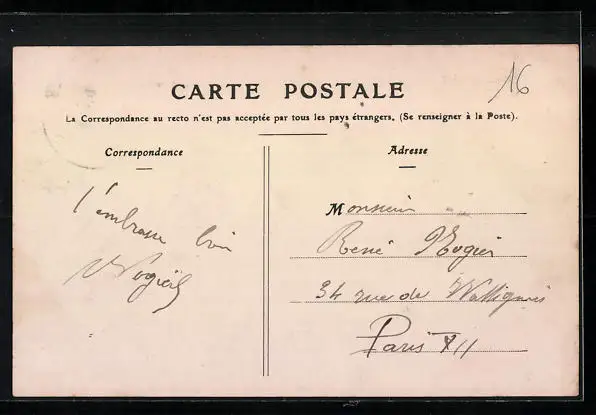 16
CARTE POSTALE
La Correspondance au recto n'est pas acceptée par tous les pays étrangers. (Se renseigner à la Poste).
Correspondance
Adresse
Monsieur
René
34 rue de Wattignies
Paris XII
t'embrasse bien